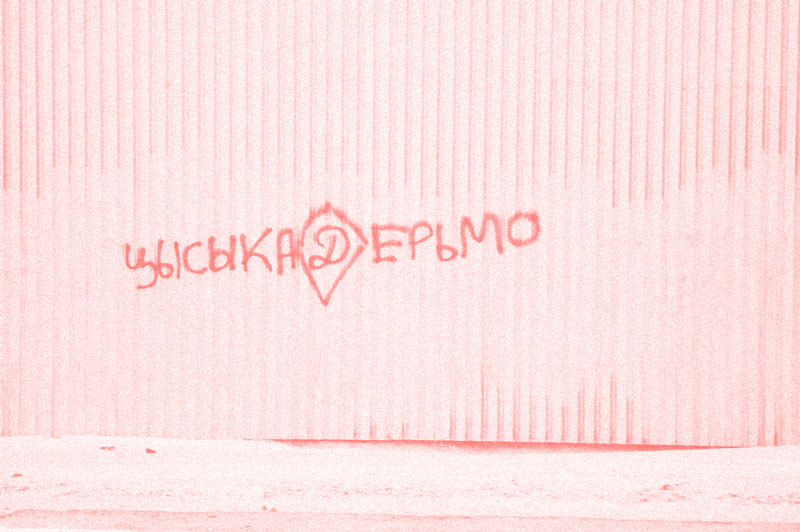 цысыКА ДЕРЬМО